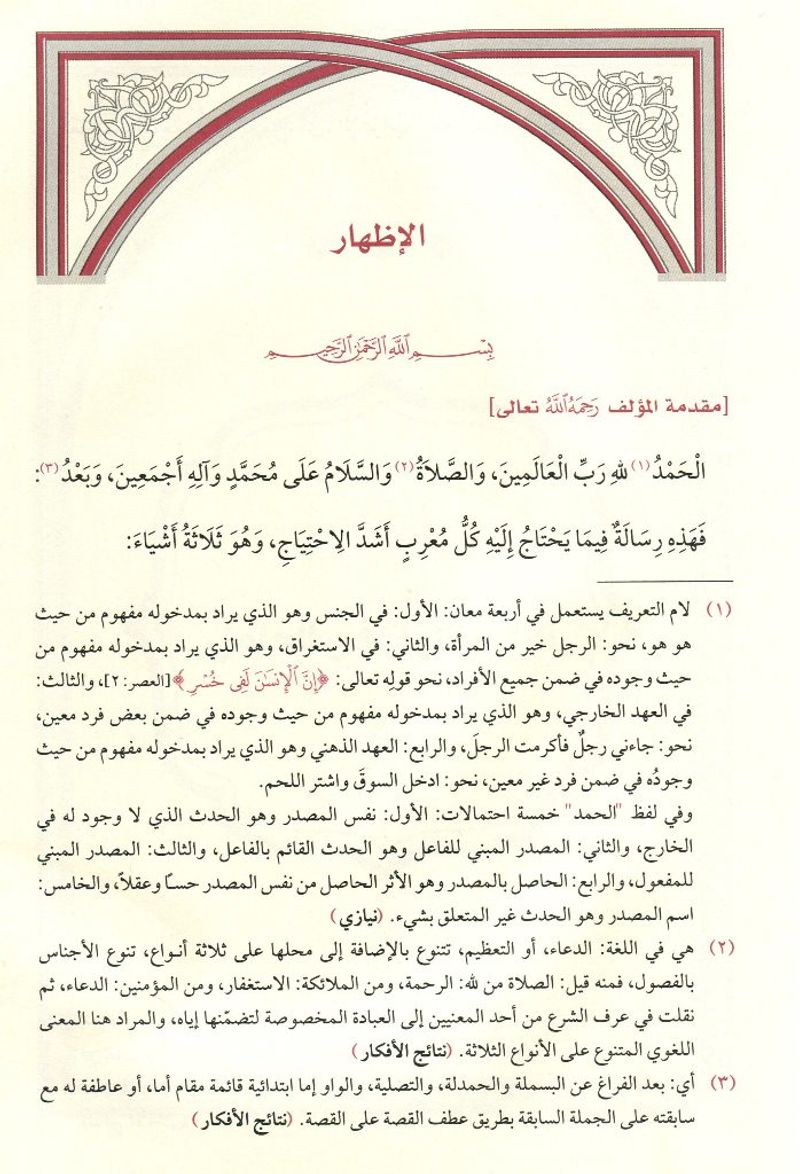 الإظهار
بِسْمِ ٱللَّهِ ٱلرَّحْمَٰنِ ٱلرَّحِيمِ
[مقدمة المؤلف رَحِمَهُ ٱللَّهُ تعالى]
الْحَمْدُ(١) للهِ رَبِّ الْعَالَمِينَ، وَالصَّلاَةُ(٢) وَالسَّلَامُ عَلَى مُحَمَّدٍ وَآلِهِ أَجْمَعِينَ، وَبَعْدُ(٣):
فَهَذِهِ رِسَالَةٌ فِيمَا يَحْتَاجُ إِلَيْهِ كُلُّ مُعْرِبٍ أَشَدَّ الِاحْتِيَاجِ، وَهُوَ ثَلَاثَةُ أَشْيَاءَ:
(١) لام التعريف يستعمل في أربعة معان: الأول: في الجنس وهو الذي يراد بمدخوله مفهوم من حيث
هو هو، نحو: الرجل خير من المرأة، والثاني: في الاستغراق، وهو الذي يراد بمدخوله مفهوم من
حيث وجوده في ضمن جميع الأفراد، نحو قولِه تعالى: ﴿إِنَّ ٱلْإِنسَٰنَ لَفِى خُسْرٍ﴾[العصر: ٢]، والثالث:
في العهد الخارجي، وهو الذي يراد بمدخوله مفهوم من حيث وجوده في ضمن بعض فرد معين،
نحو: جاءني رجلٌ فأكرمت الرجلَ، والرابع: العهد الذهني وهو الذي يراد بمدخوله مفهوم من حيث
وجودُه في ضمن فرد غير معين، نحو: ادخل السوقَ واشتر اللحم.
وفي لفظ "الحمد" خمسة احتمالات: الأول: نفس المصدر وهو الحدث الذي لا وجود له في
الخارج، والثاني: المصدر المبني للفاعل وهو الحدث القائم بالفاعل، والثالث: المصدر المبني
للمفعول، والرابع: الحاصل بالمصدر وهو الأثر الحاصل من نفس المصدر حسـًا وعقلاً، والخامس:
اسم المصدر وهو الحدث غير المتعلق بشيء. (نيازي)
(٢) هي في اللغة: الدعاء، أو التعظيم، تتنوع بالإضافة إلى محلها على ثلاثة أنـواع، تنوع الأجناس
بالفصول، فمنه قيل: الصلاة من لله: الرحمة، ومن الملائكة: الاستغفار، ومن المؤمنين: الدعاء، ثم
نقلت في عرف الشرع من أحد المعنيين إلى العبادة المخصوصة لتضمّنها إياه، والمراد هنا المعنى
اللغوي المتنوع على الأنواع الثلاثة. (نتائج الأفكار)
(٣) أي: بعد الفراغ عن البسملة والحمدلة، والتصلية، والواو إما ابتدائية قائمة مقام أما، أو عاطفة له مع
سابقته على الجملة السابقة بطريق عطف القصة على القصة. (نتائج الأفكار)